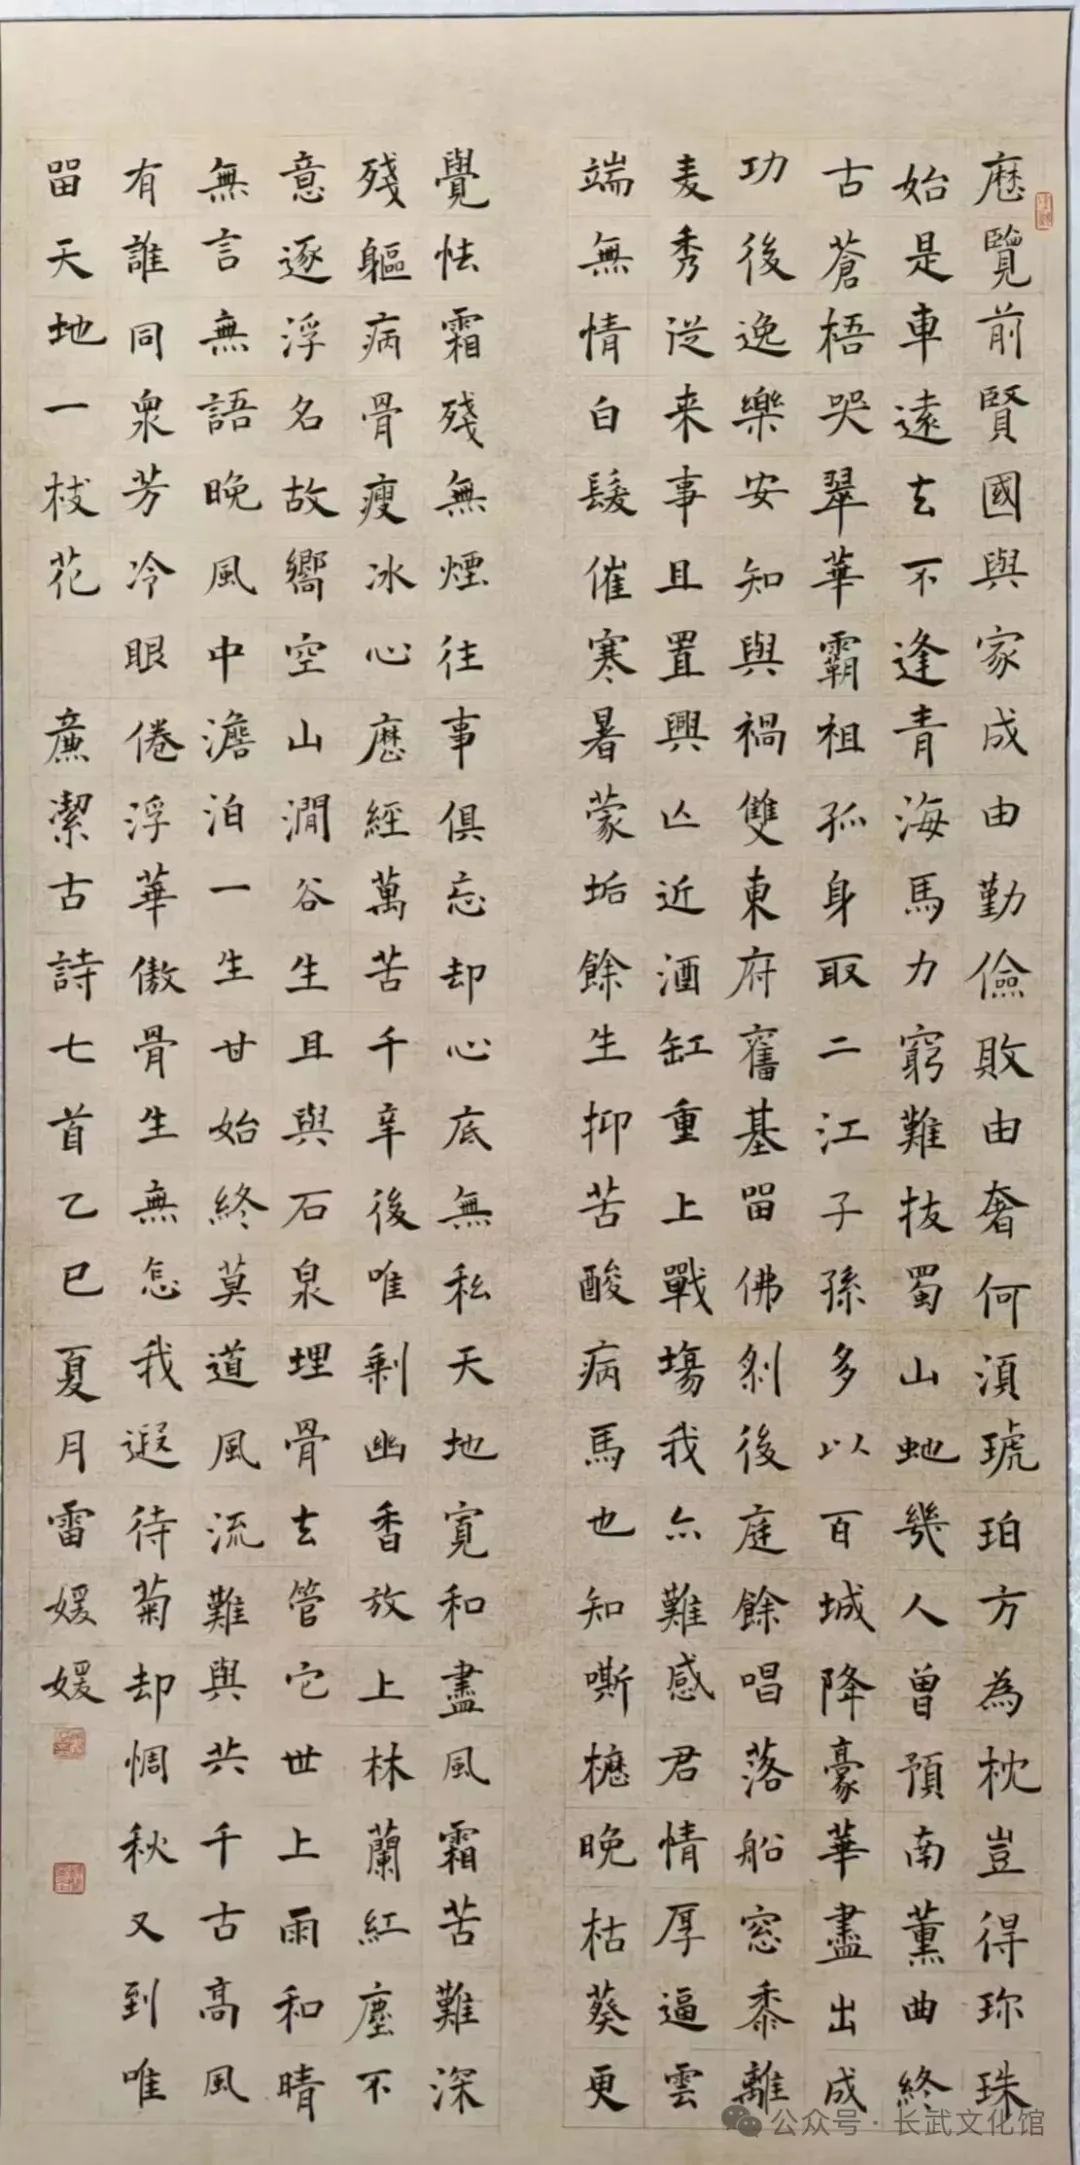 歷覽前賢國與家成由勤儉敗由奢何須琥珀方為枕豈得珎珠
始是車遠去不逢青海馬力窮難拔蜀山虵幾人曾預南薰曲終
古蒼梧哭翠華霸祖孤身取二江子孫多以百城降豪華盡出成
功後逸樂安知與禍雙東府舊基畱佛剎後庭餘唱落船窓黍離
麦秀従来事且置興亾近酒缸重上戰塲我亦難感君情厚逼雲
端無情白髮催寒暑蒙垢餘生抑苦酸病馬也知嘶櫪晚枯葵更
覺怯霜殘無煙往事俱忘却心底無私天地寬和盡風霜苦難深
殘軀病骨瘦冰心歷經萬苦千辛後唯剩幽香放上林蘭紅塵不
意逐浮名故嚮空山澗谷生且與石泉埋骨去管它世上雨和晴
無言無語晚風中澹泊一生甘始終莫道風流難與共千古高風
有誰同衆芳冷眼倦浮華傲骨生無怎我遐待菊却惆秋又到唯
畱天地一枝花 廉潔古詩七首乙巳夏月雷媛媛
公众号·长武文化馆